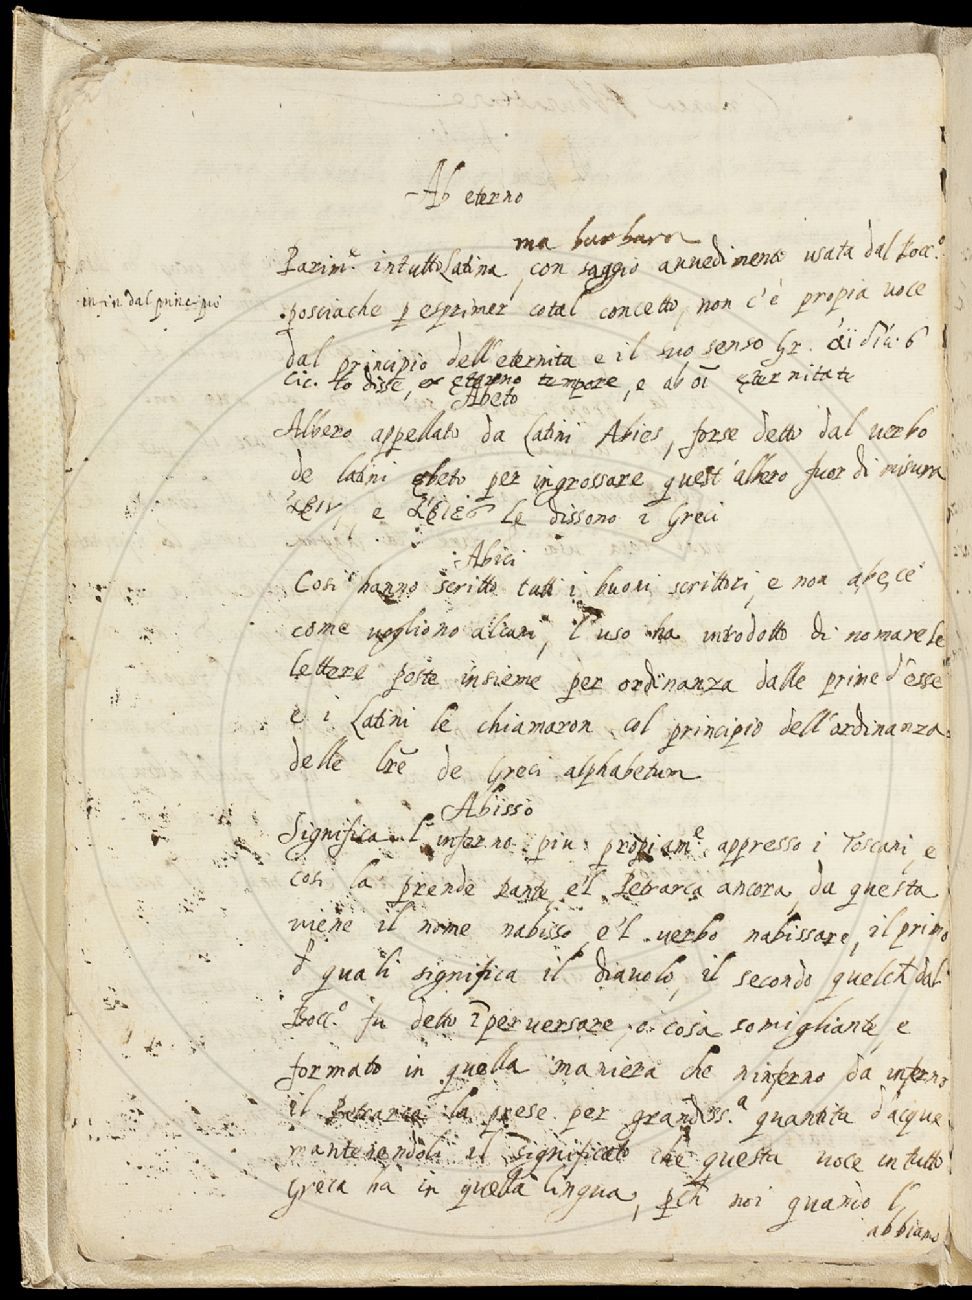 Ab eterno
ma barbara
Parim.e in tutto Latina, con saggio avvedimento usata dal Bocc.o
infin dal principio
posciache p esprimer cotal concetto, non c'è propia voce
dal principio dell'eternita e il suo senso Gr.
Cic. lo disse, ex eterno tempore, e ab oi eternitate
Abeto
Albero appellato da Latini Abies, forse detto dal verbo
de latini abeto per ingrossare quest'albero fuor di misura
e le dissono i Greci
Abici
Cosi hanno scritto tutti i buoni scrittori, e non abecé
come vogliono alcuni, l'uso ha introdotto di nomare le
lettere poste insieme per ordinanza dalle prime d'esse
e i Latini le chiamaron col principio dell'ordinanza
delle lre de Greci alphabetum
Abisso
Significa l'inferno piu propiam.e appresso i Toscani, e
cosi la prende Dante, e'l Petrarca ancora, da questa
viene il nome nabisso, e'l verbo nabissare, il primo
d quali significa il diavolo, il secondo quelch dal
Bocc.o fu detto iperversare, o cosa somigliante, e
formato in quella maniera che ninferno da inferno
il Petrarca la prese per grandiss.a quantita d'acque
mantenendoli il significato che questa voce in tutto
Greca ha in quella lingua, pch noi quando l'
abbiamo